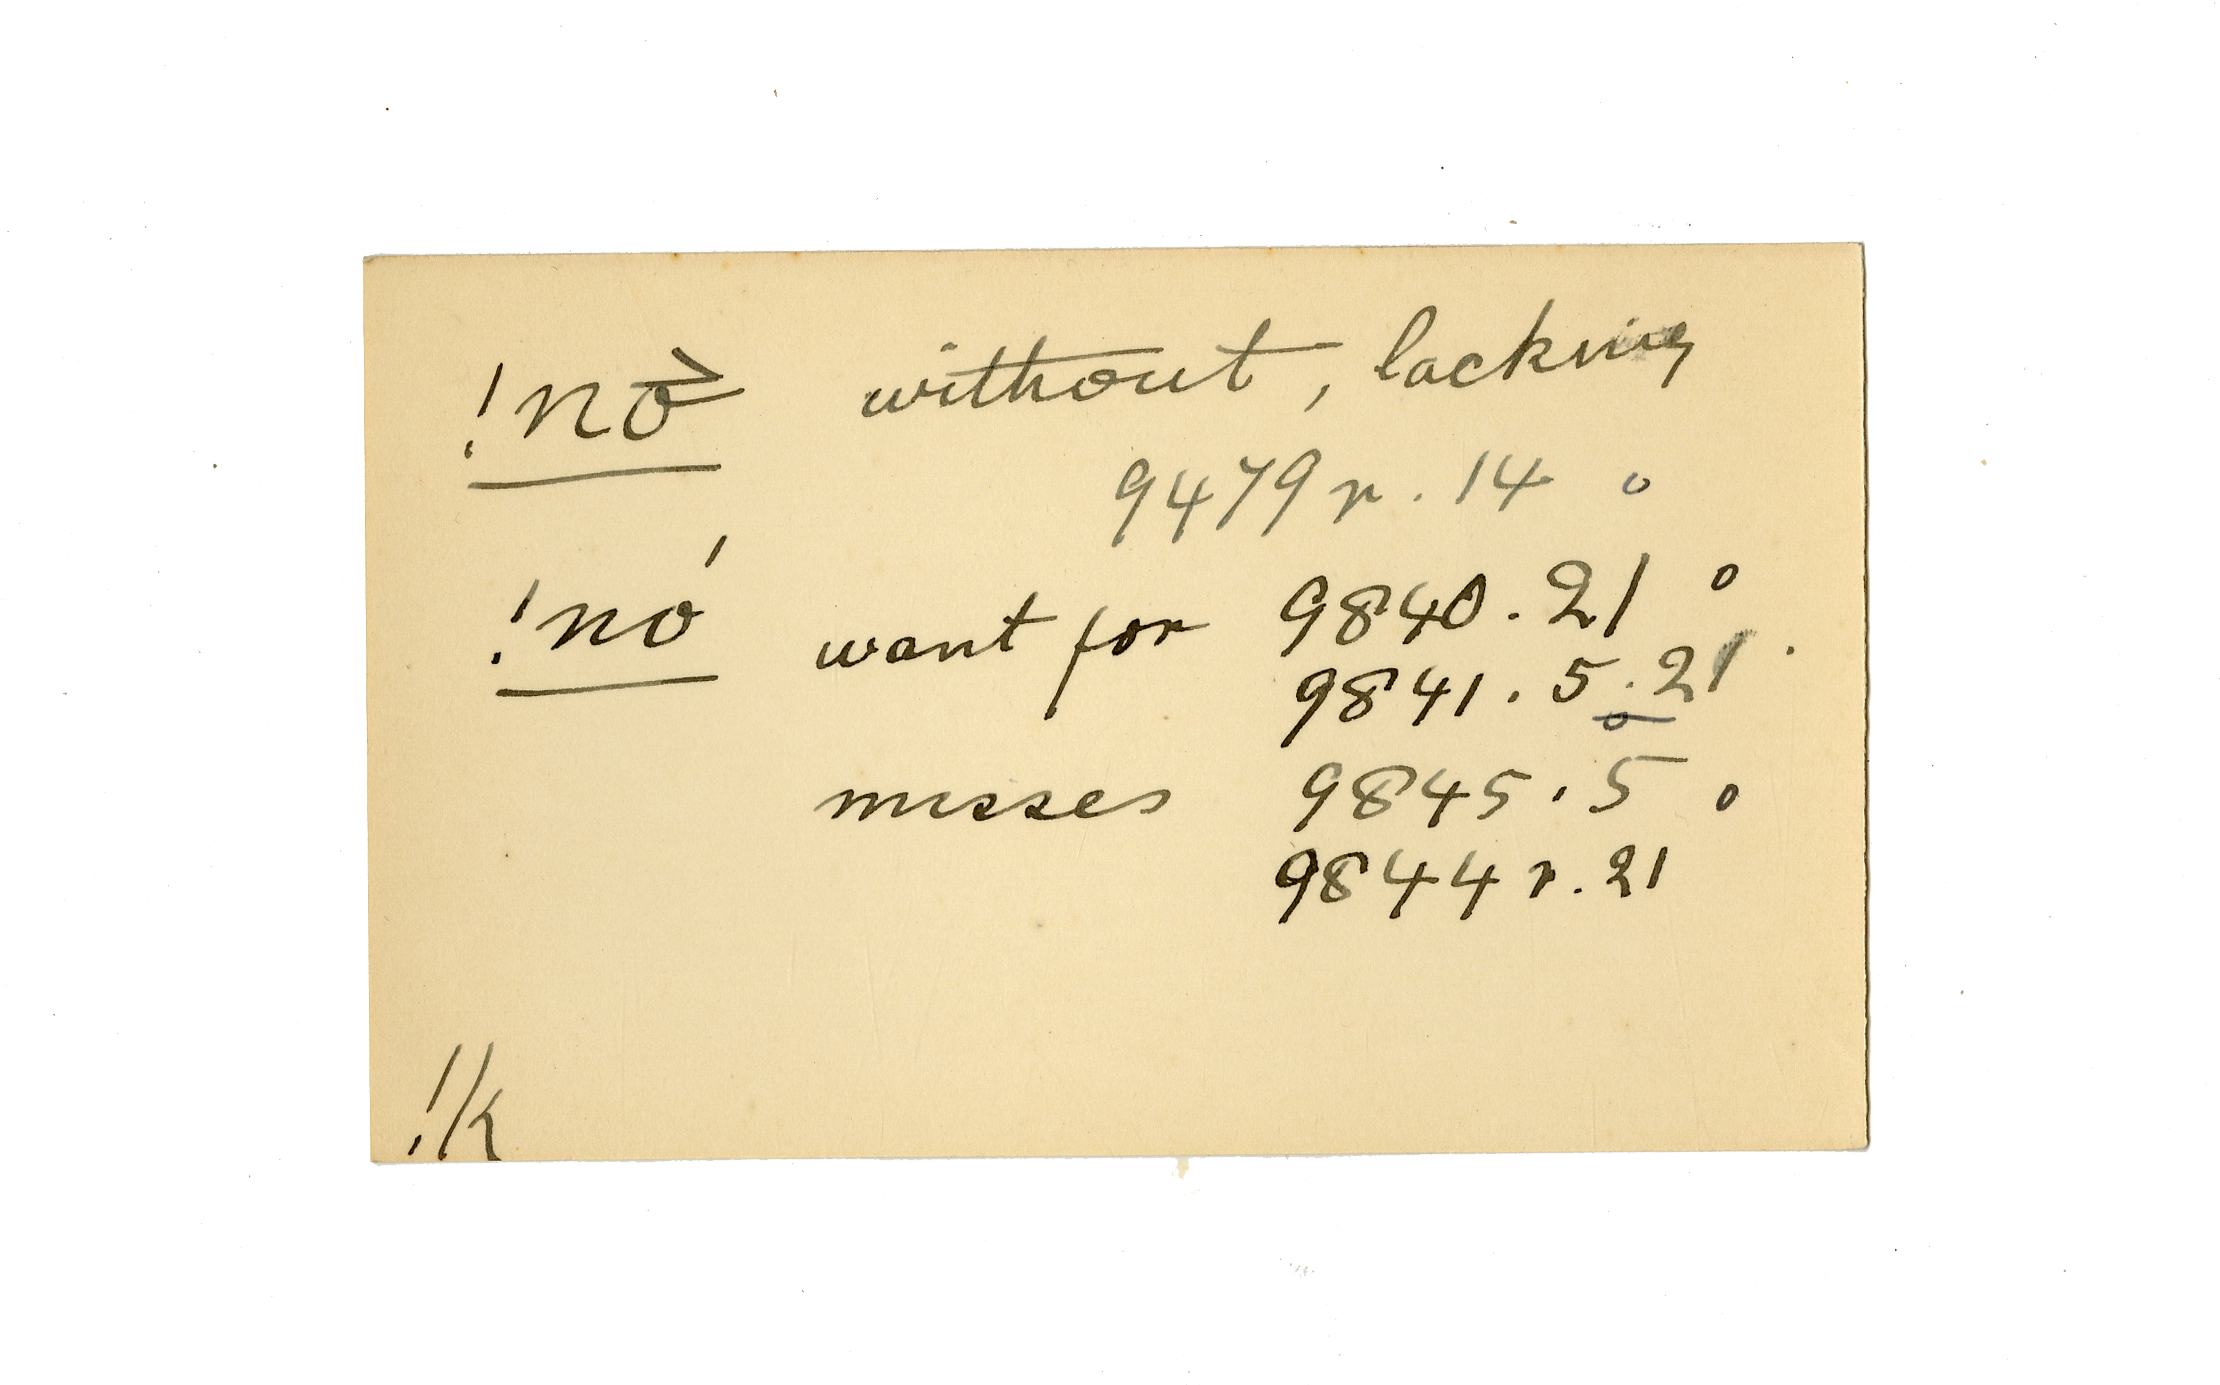 !nō without, lacking
9479 r. 14 o
!nó want for 9840. 21 o
9841. 5. 21.
misses 9845. 5 o
9844 r. 21
!k